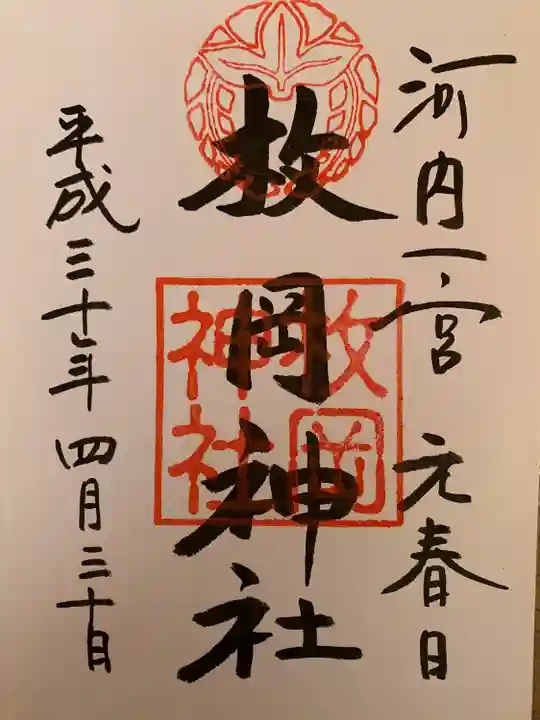 河内一宮 元春日
枚岡神社
枚岡
神社
平成三十年 四月三十日